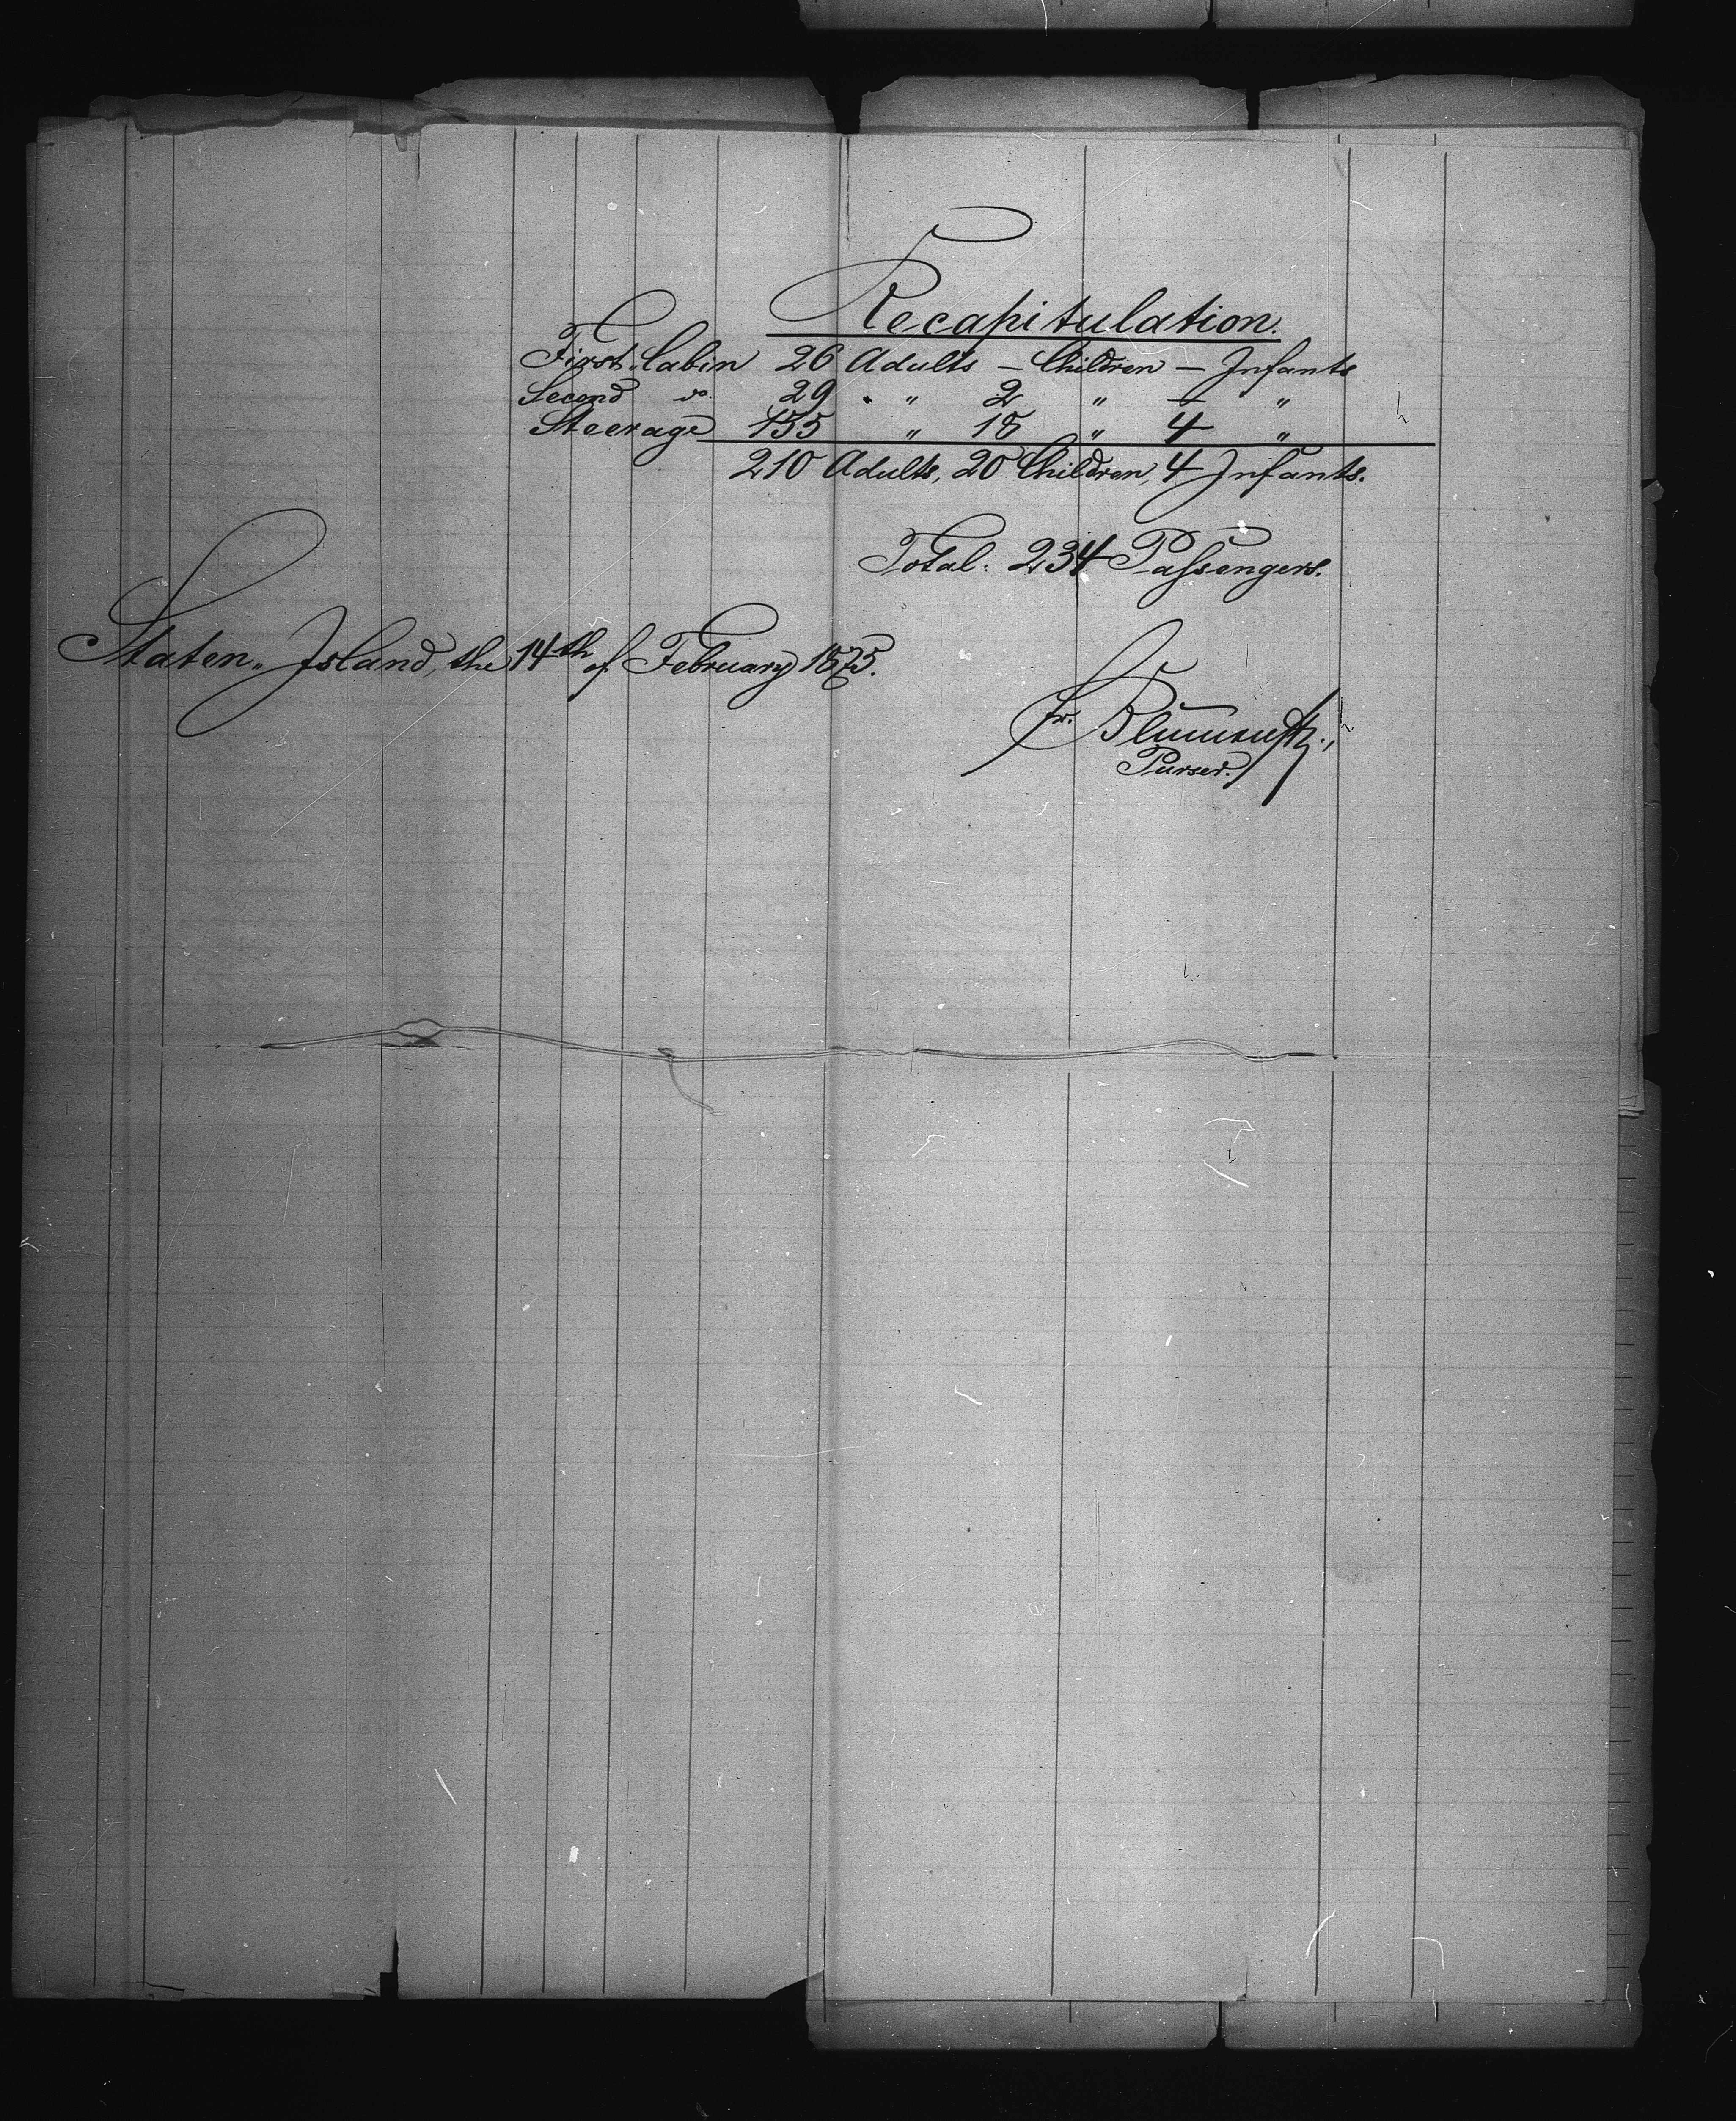 Recapitulation.
First Cabin 26 Adults – Children – Infants
Second do. 29 " 2 " – "
Steerage 155 " 18 " 4 "
210 Adults, 20 Children, 4 Infants.
Total: 234 Passengers.
Staten Island, the 14th of February 1875.
Purser.